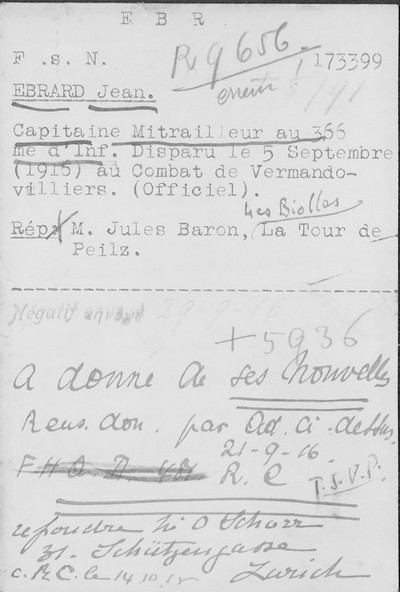 E B R
F .s. N. R 9656 173399
EBRARD Jean.
Capitaine Mitrailleur au 366
me d'Inf. Disparu le 5 Septembre
(1916) au Combat de Vermando-
villiers. (Officiel).
Les Biolles
Rép. M. Jules Baron, La Tour de
Peilz.
Négatif envoyé 29-9-16
+5936
a donné de ses Nouvelles
Rens. don. par Ad. ci-dessus
21-9-16.
R. C T.S.V.P.
repondre à O Schorr
31. Schützengasse
c.R.C. le 14.10.16 Zurich